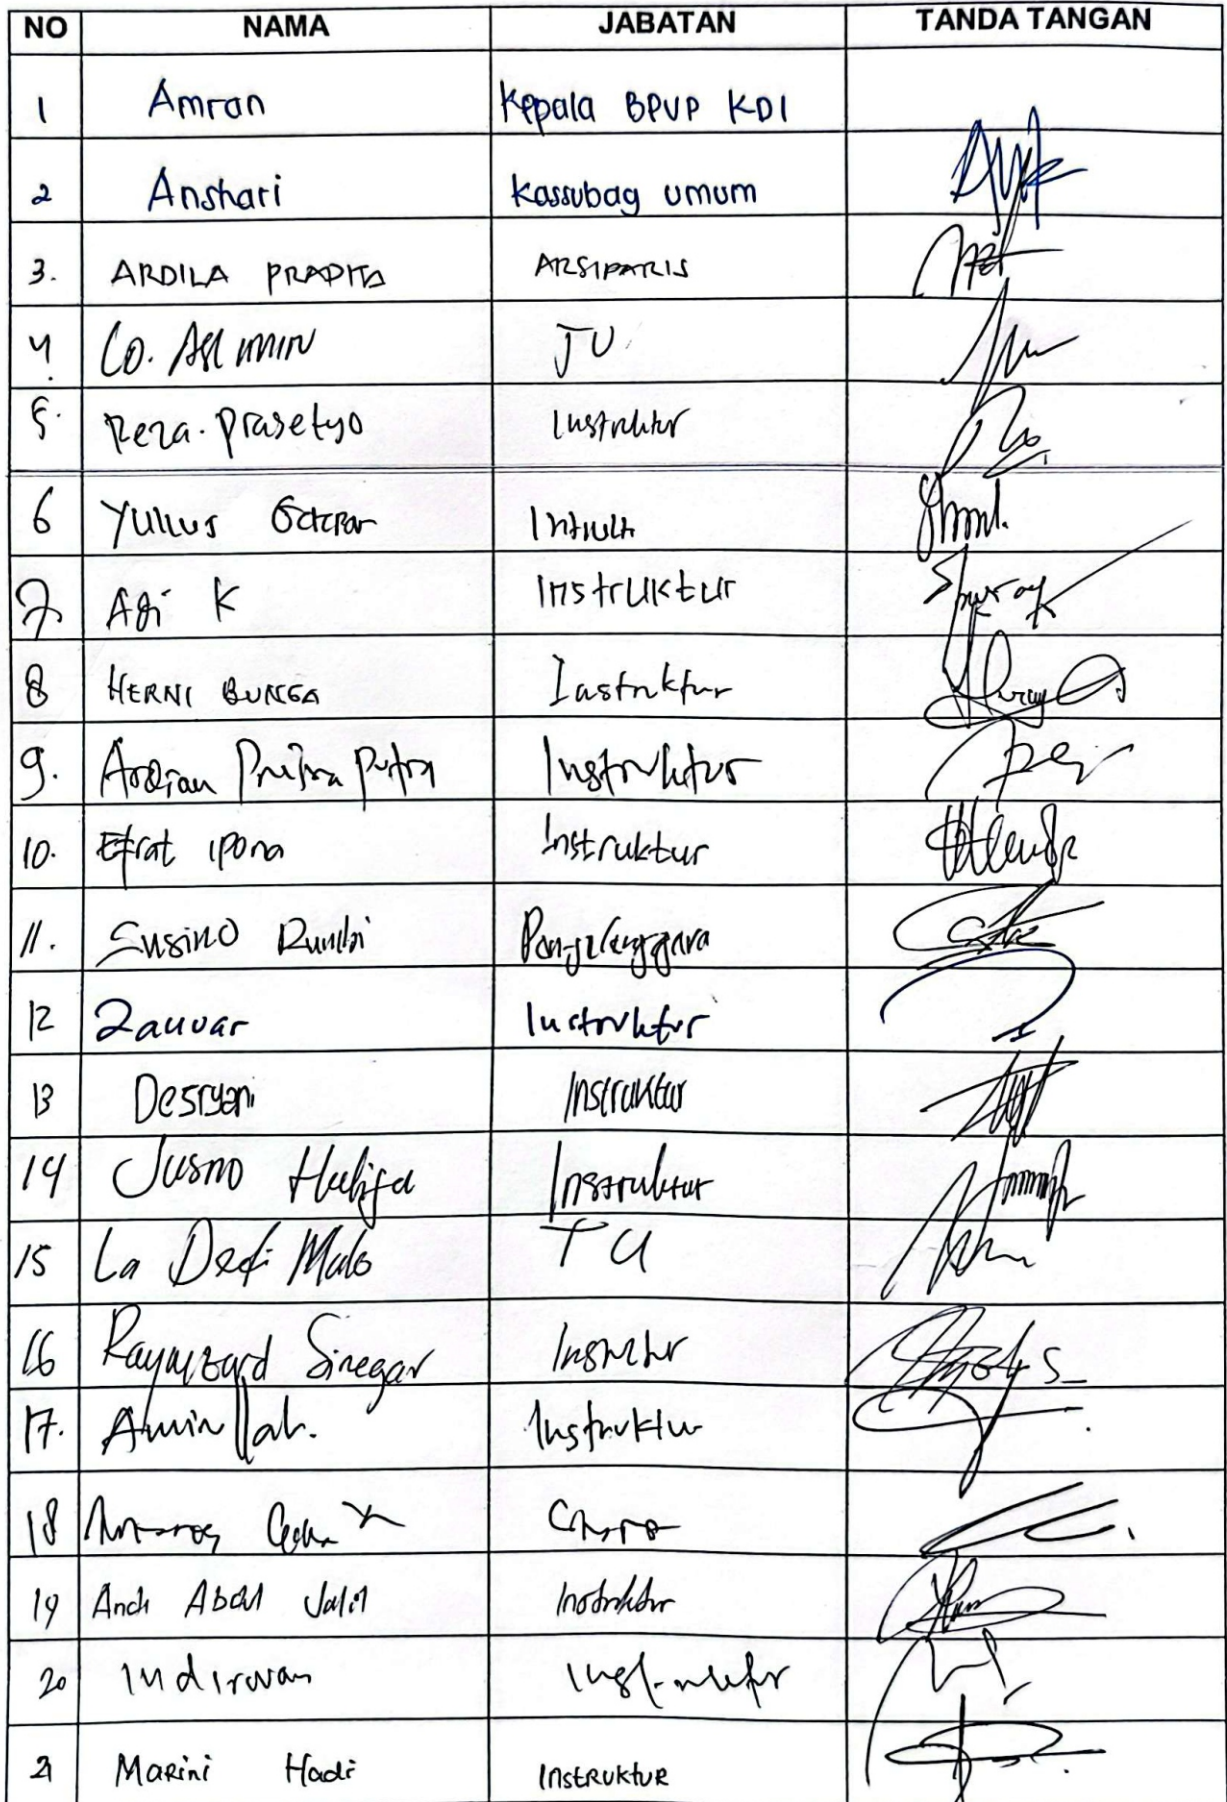 NO NAMA JABATAN TANDA TANGAN
1 Amran Kepala BPVP KDI
2 Anshari Kassubag umum
3. ARDILA PRADITA ARSIPARIS
4. LD. ASLIMIN TU
5. Reza. Prasetyo Instruktur
6 YULIUS
7. Adi K Instruktur
8 HERNI BUNGA Instruktur
9. Ardian Putra Instruktur
10. Efrat ipona Instruktur
11. Susino Rumbi Penyelenggara
12 Zauvar Instruktur
13 Desryani Instruktur
14 Jusno Halifa Instruktur
15 La Dedi Malo TU
16 Siregar Instruktur
17. Aminullah. Instruktur
18
19 Andi Abdul Jalil Instruktur
20 Indirwan Instruktur
21 MARini Hadi INStRUKtUR